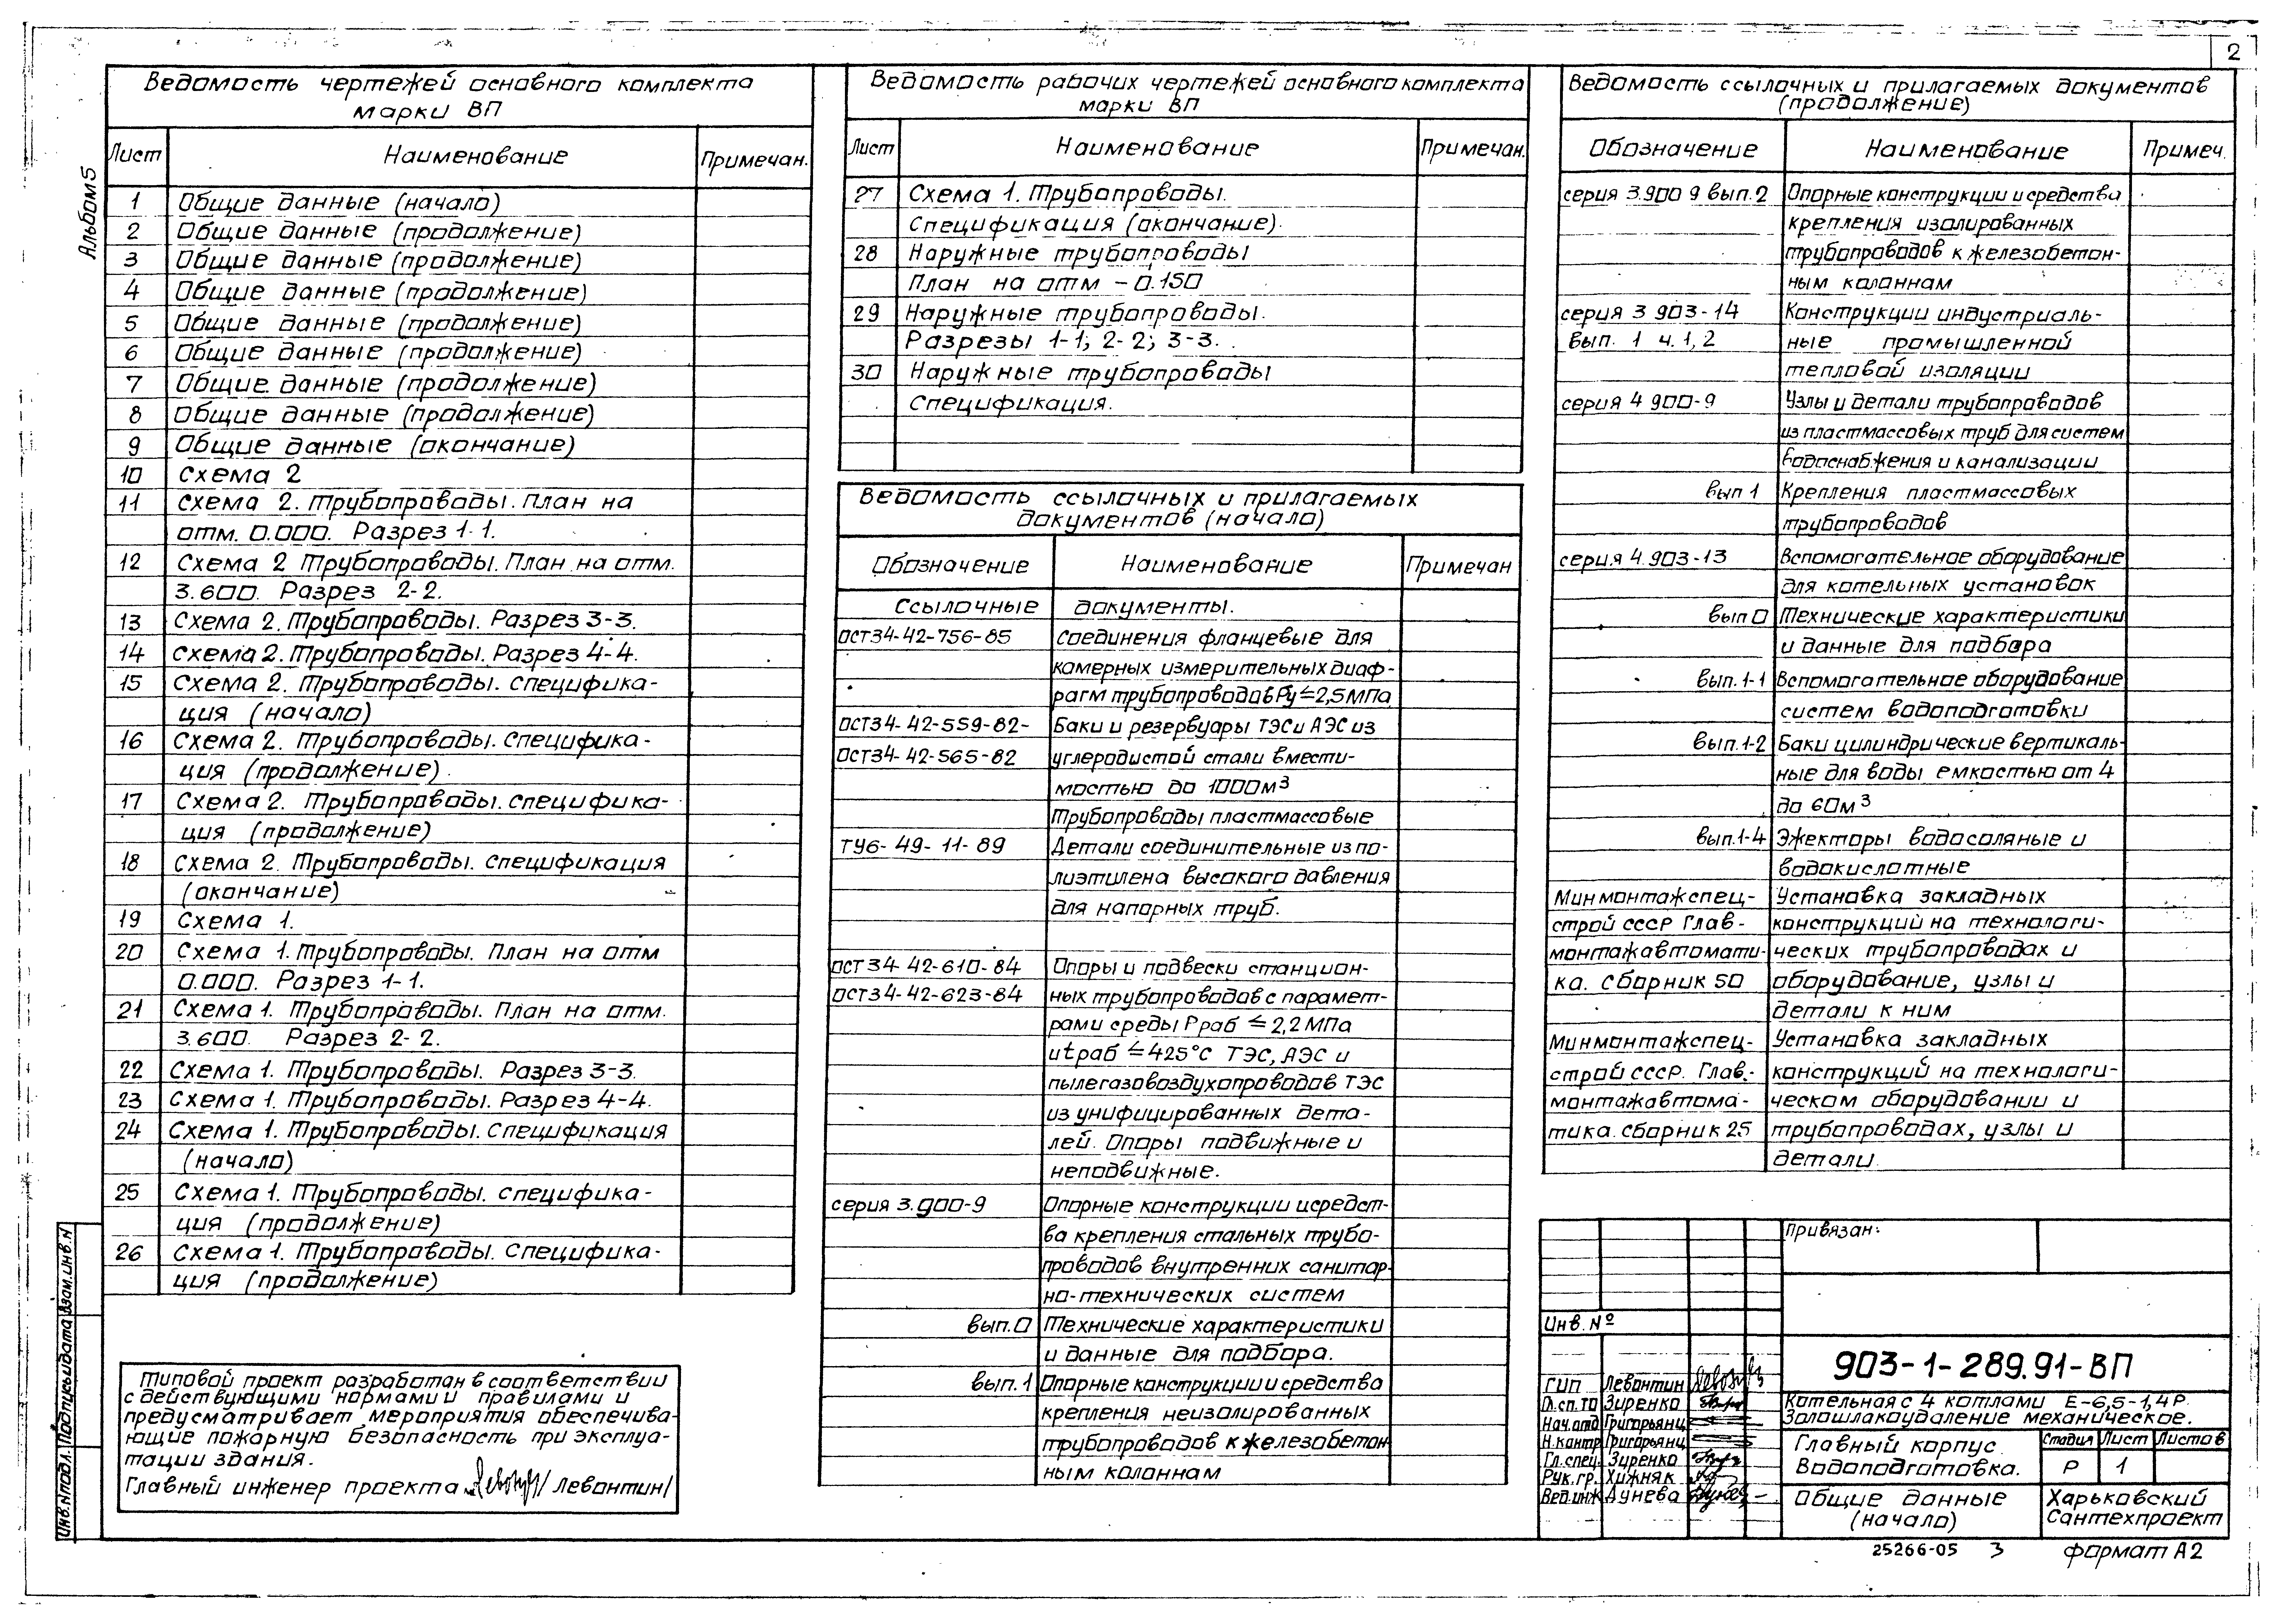 2
Альбом 5
Ведомость чертежей основного комплекта
марки ВП
Лист Наименование Примечан.
1 Общие данные (начало)
2 Общие данные (продолжение)
3 Общие данные (продолжение)
4 Общие данные (продолжение)
5 Общие данные (продолжение)
6 Общие данные (продолжение)
7 Общие данные (продолжение)
8 Общие данные (продолжение)
9 Общие данные (окончание)
10 Схема 2
11 Схема 2. Трубопроводы. План на
отм. 0.000. Разрез 1-1.
12 Схема 2 Трубопроводы. План на отм.
3.600. Разрез 2-2.
13 Схема 2. Трубопроводы. Разрез 3-3.
14 Схема 2. Трубопроводы. Разрез 4-4.
15 Схема 2. Трубопроводы. Специфика-
ция (начало)
16 Схема 2. Трубопроводы. Специфика-
ция (продолжение).
17 Схема 2. Трубопроводы. Специфика-
ция (продолжение)
18 Схема 2. Трубопроводы. Спецификация
(окончание)
19 Схема 1.
20 Схема 1. Трубопроводы. План на отм
0.000. Разрез 1-1.
21 Схема 1. Трубопроводы. План на отм.
3.600. Разрез 2-2.
22 Схема 1. Трубопроводы. Разрез 3-3.
23 Схема 1. Трубопроводы. Разрез 4-4.
24 Схема 1. Трубопроводы. Спецификация
(начало)
25 Схема 1. Трубопроводы. Специфика-
ция (продолжение)
26 Схема 1. Трубопроводы. Специфика-
ция (продолжение)
Типовой проект разработан в соответствии
с действующими нормами и правилами и
предусматривает мероприятия обеспечива-
ющие пожарную безопасность при эксплуа-
тации здания.
Главный инженер проекта /Левонтин/
Инв.N подл. Подпись и дата Взам.инв.N
Ведомость рабочих чертежей основного комплекта
марки ВП
Лист Наименование Примечан.
27 Схема 1. Трубопроводы.
Спецификация (окончание).
28 Наружные трубопроводы
План на отм -0.150
29 Наружные трубопроводы.
Разрезы 1-1; 2-2; 3-3.
30 Наружные трубопроводы
Спецификация.
Ведомость ссылочных и прилагаемых
документов (начало)
Обозначение Наименование Примечан
Ссылочные документы.
ОСТ34-42-756-85 Соединения фланцевые для
камерных измерительных диаф-
рагм трубопроводов Ру≤2,5МПа
ОСТ34-42-559-82- Баки и резервуары ТЭС и АЭС из
ОСТ34-42-565-82 углеродистой стали вмести-
мостью до 1000м³
Трубопроводы пластмассовые
ТУ6-49-11-89 Детали соединительные из по-
лиэтилена высокого давления
для напорных труб.
ОСТ34-42-610-84 Опоры и подвески станцион-
ОСТ34-42-623-84 ных трубопроводов с парамет-
рами среды Рраб ≤ 2,2 МПа
и tраб ≤ 425°С ТЭС, АЭС и
пылегазовоздухопроводов ТЭС
из унифицированных дета-
лей. Опоры подвижные и
неподвижные.
серия 3.900-9 Опорные конструкции и средст-
ва крепления стальных трубо-
проводов внутренних санитар-
но-технических систем
вып.0 Технические характеристики
и данные для подбора.
вып.1 Опорные конструкции и средства
крепления неизолированных
трубопроводов к железобетон-
ным колоннам
Ведомость ссылочных и прилагаемых документов
(продолжение)
Обозначение Наименование Примеч.
серия 3.900 9 вып.2 Опорные конструкции и средства
крепления изолированных
трубопроводов к железобетон-
ным колоннам
серия 3 903-14 Конструкции индустриаль-
вып. 1 ч.1,2 ные промышленной
тепловой изоляции
серия 4 900-9 Узлы и детали трубопроводов
из пластмассовых труб для систем
водоснабжения и канализации
вып 1 Крепления пластмассовых
трубопроводов
серия 4.903-13 Вспомогательное оборудование
для котельных установок
вып 0 Технические характеристики
и данные для подбора
вып.1-1 Вспомогательное оборудование
систем водоподготовки
вып.1-2 Баки цилиндрические вертикаль-
ные для воды емкостью от 4
до 60м³
вып.1-4 Эжекторы водосоляные и
водокислотные
Минмонтажспец- Установка закладных
строй СССР Глав- конструкций на технологи-
монтажавтомати- ческих трубопроводах и
ка. Сборник 50 оборудование, узлы и
детали к ним
Минмонтажспец- Установка закладных
строй СССР. Глав.- конструкций на технологи-
монтажавтома- ческом оборудовании и
тика. Сборник 25 трубопроводах, узлы и
детали.
Привязан:
Инв.№
903-1-289.91-ВП
Котельная с 4 котлами Е-6,5-1,4Р.
Золошлакоудаление механическое.
ГИП Левонтин
Гл.сп.ТО Зиренко
Нач.отд Григорьянц
Н.контр Григорьянц
Гл.спец. Зиренко
Рук.гр. Хижняк
Вед.инж Дунева
Главный корпус.
Водоподготовка.
Стадия Лист Листов
Р 1
Общие данные
(начало)
Харьковский
Сантехпроект
25266-05 3 формат А2